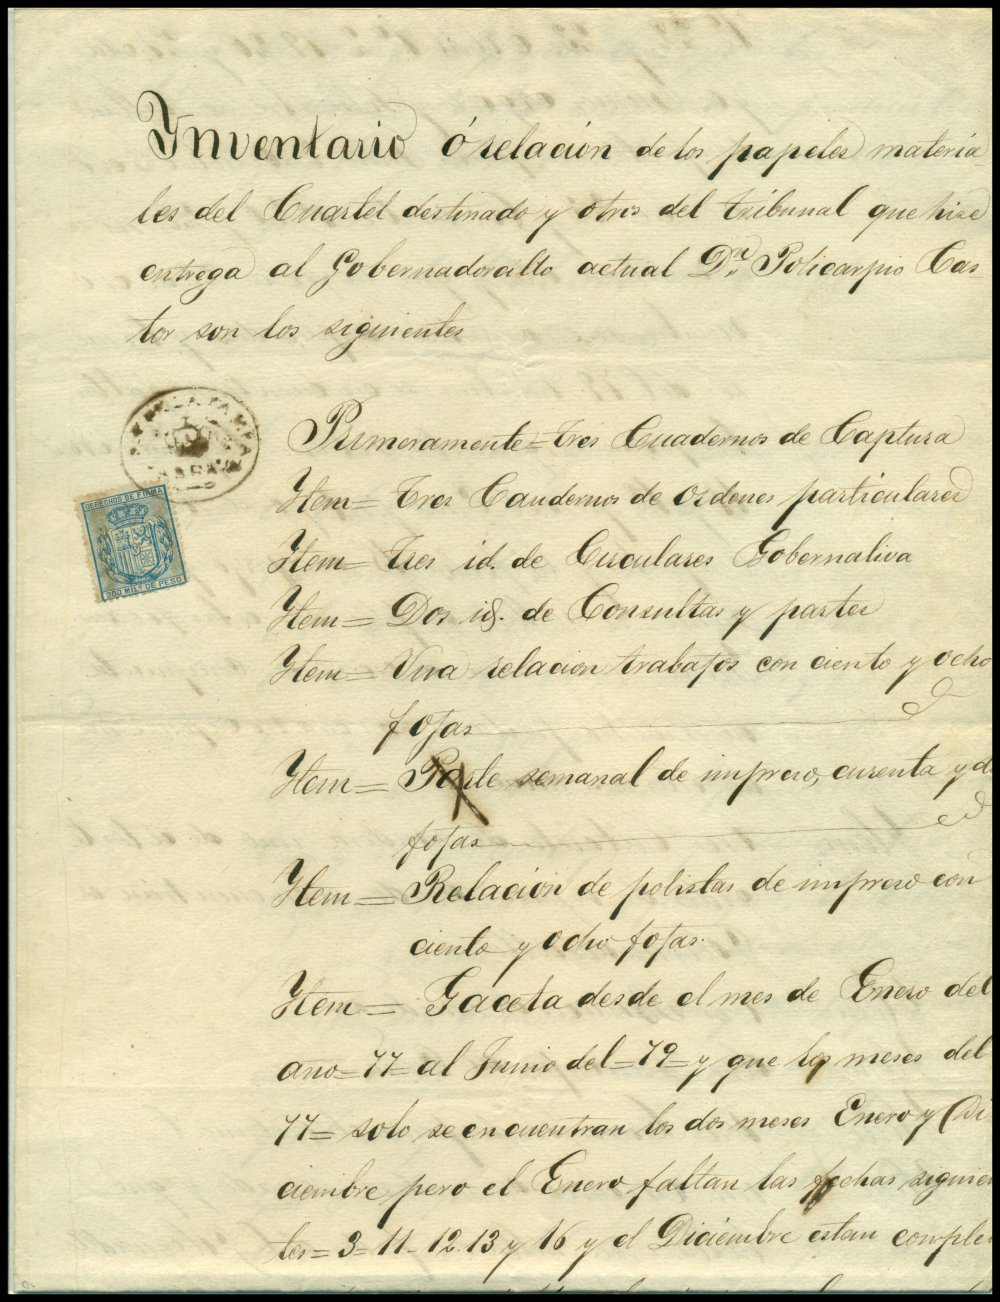 Inventario ó relación de los papeles materia
les del Cuartel destinado y otros del tribunal que hize
entrega al Gobernadorcillo actual Dn. Policarpio Cas-
tor son los siguientes
DERECHOS DE FIRMA
200 MILS DE PESO
Primeramente = tres Cuadernos de Captura
Item = Tres Caudernos de ordenes particulares
Item = Tres id. de Circulares Gobernativa
Item = Dos id. de Consultas y partes
Item = Una relacion trabajos con ciento y ocho
fojas
Item = Parte semanal de impreso, curenta y d
fojas
Item = Relación de polistas de impreso con
ciento y ocho fojas.
Item = Gaceta desde el mes de Enero del
año = 77 = al Junio del = 79 = y que los meses del
77 = solo se encuentran los dos meses Enero y Di
ciembre pero el Enero faltan las fechas siguien
tes = 3 = 11 - 12. 13 y 16 y el Diciembre estan comple